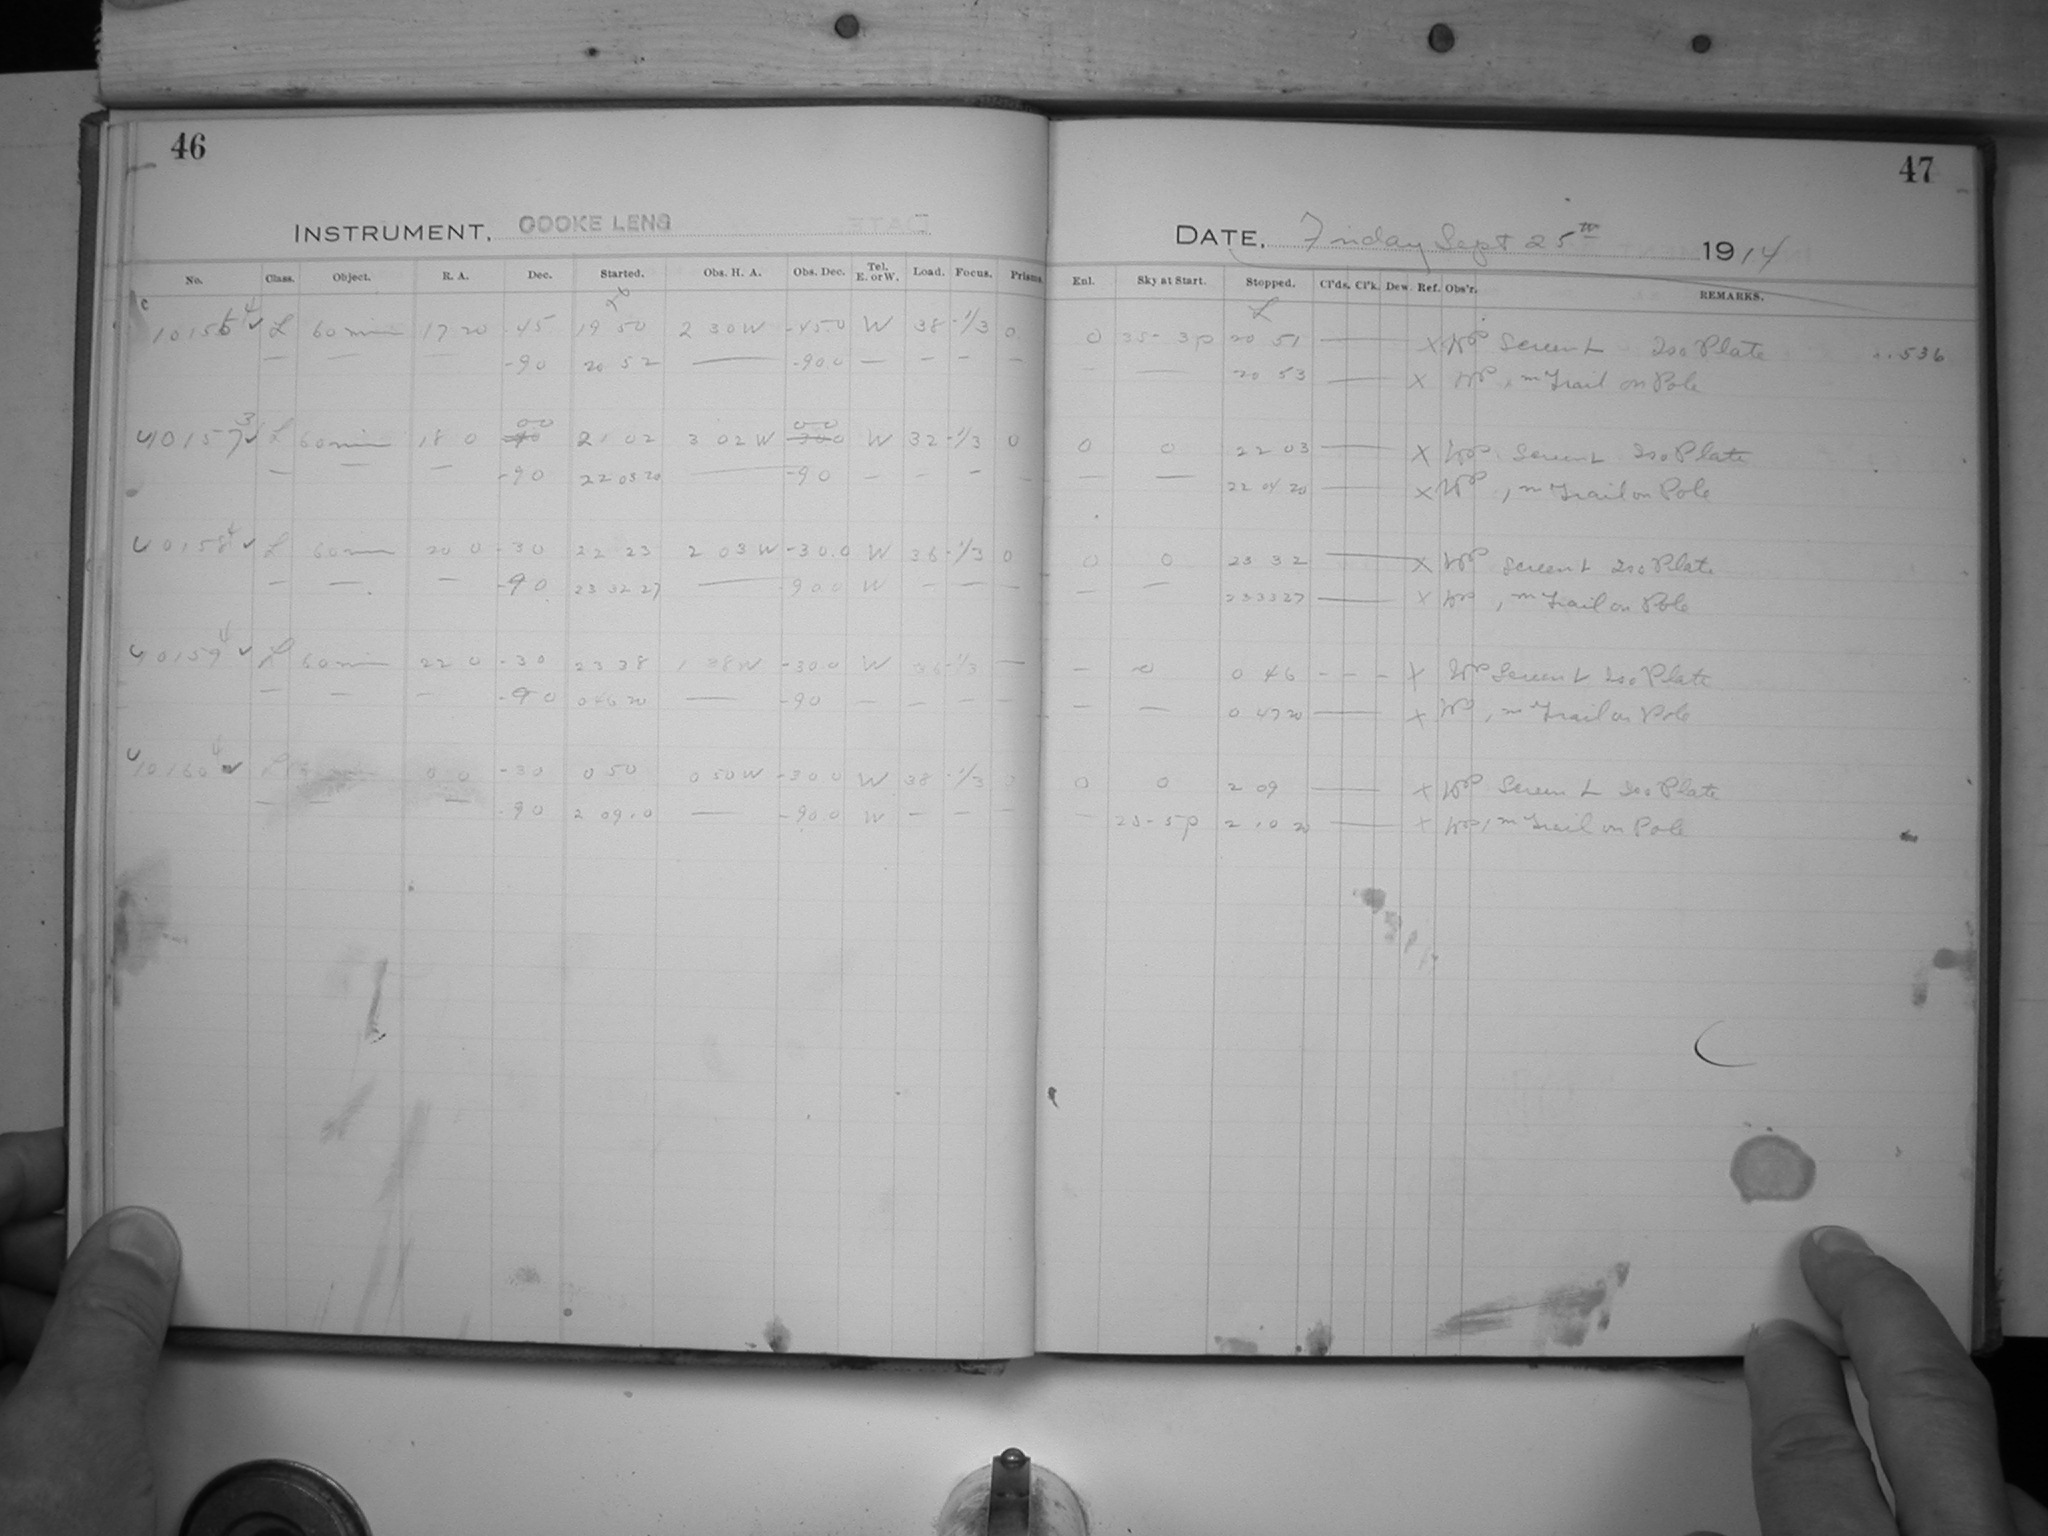 46
INSTRUMENT, COOKE LENS
No. Class. Object. R. A. Dec. Started. Obs. H. A. Obs. Dec. Tel. E. or W. Load. Focus. Prisms
C 4
10156 L 60 min 17 20 -45 19 50 2 30 W -45.0 W 38 -1/3 0
— — — -90 20 52 — -90.0 — — — —
3
10157 L 60 min 18 0 00 21 02 3 02 W 0.0 W 32 -1/3 0
— — — -90 22 03 20 — -90 — — — —
4
10158 L 60 min 20 0 -30 22 23 2 03 W -30.0 W 36 -1/3 0
— — — -90 23 32 27 — -90.0 W — — —
4
10159 L 60 min 22 0 -30 23 38 1 38 W -30.0 W 36 -1/3 —
— — — -90 0 46 20 — -90 — — — —
4
10160 L 0 0 -30 0 50 0 50 W -30.0 W 38 -1/3 0
— — — -90 2 09.0 — -90.0 W — — —
47
DATE, Friday Sept 25th 1914
Enl. Sky at Start. Stopped. Cl'ds. Cl'k. Dew. Ref. Obs'r. REMARKS.
0 3s- 3p 20 51 — X Screen L Iso Plate 536
— — 20 53 — X , m Trail on Pole
0 0 22 03 — X Screen L Iso Plate
— — 22 04 20 — X , m Trail on Pole
0 0 23 32 — X Screen L Iso Plate
— — 23 33 27 — X , m Trail on Pole
— 0 0 46 - - - X Screen L Iso Plate
— — 0 47 20 — X , m Trail on Pole
0 0 2 09 — X Screen L Iso Plate
— 2s- 5p 2 10 20 — X , m Trail on Pole